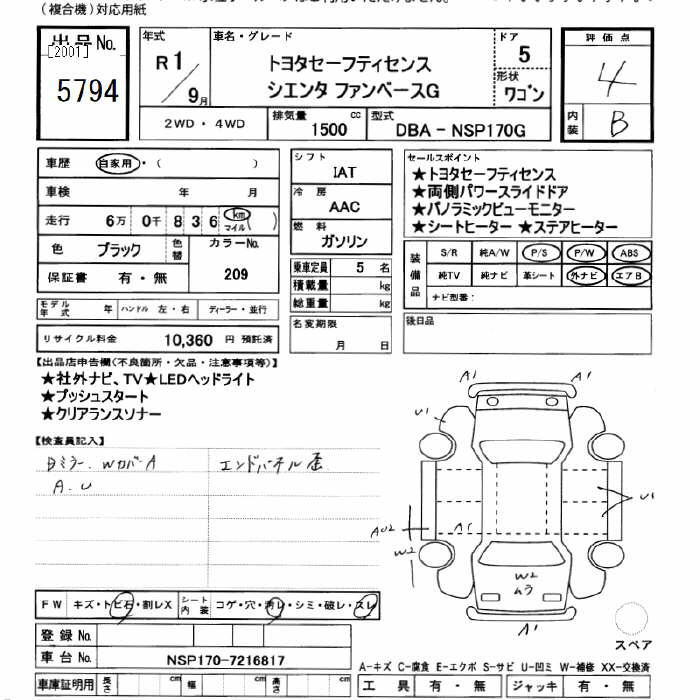 (複合機)対応用紙
出品No.
[2001]
5794
年式
R1/9月
車名・グレード
トヨタセーフティセンス
シエンタ ファンベースG
ドア
5
形状
ワゴン
評価点
4
内装
B
2WD・4WD
排気量
1500 cc
型式
DBA - NSP170G
車歴 自家用・( )
車検 年 月
走行 6万 0千 8 3 6 km マイル ( )
色 ブラック 色替 カラーNo.
保証書 有・無 209
モデル年式 年 ハンドル 左・右 ディーラー・並行
リサイクル料金 10,360 円 預託済
シフト
IAT
冷房
AAC
燃料
ガソリン
乗車定員 5 名
積載量 kg
総重量 kg
名変期限
月 日
セールスポイント
★トヨタセーフティセンス
★両側パワースライドドア
★パノラミックビューモニター
★シートヒーター ★ステアヒーター
装備品
S/R 純A/W P/S P/W ABS
純TV 純ナビ 革シート 外ナビ エアB
ナビ型番:
後日品
【出品店申告欄(不良箇所・欠品・注意事項等)】
★社外ナビ、TV★LEDヘッドライト
★プッシュスタート
★クリアランスソナー
【検査員記入】
Wカバー A
A.U
エンドパネル歪
A1 A1
U1
U1
AU2
A1
W2
W2
ムラ
A1
スペア
FW キズ・トビ石・割レX シート内装 コゲ・穴・汚レ・シミ・破レ・スレ
登録No.
車台No. NSP170-7216817
車庫証明用 長さ cm 幅 cm 高さ cm
A-キズ C-腐食 E-エクボ S-サビ U-凹ミ W-補修 XX-交換済
工具 有・無 ジャッキ 有・無